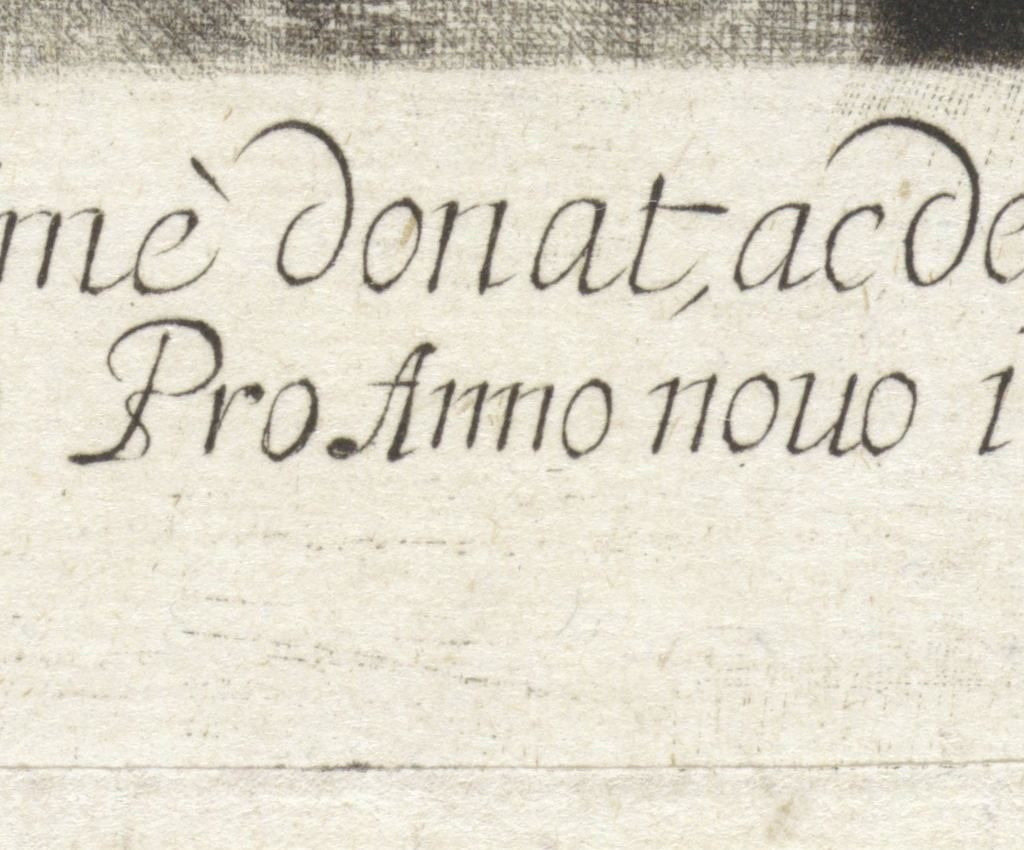 mè donat, ac de
Pro Anno nouo